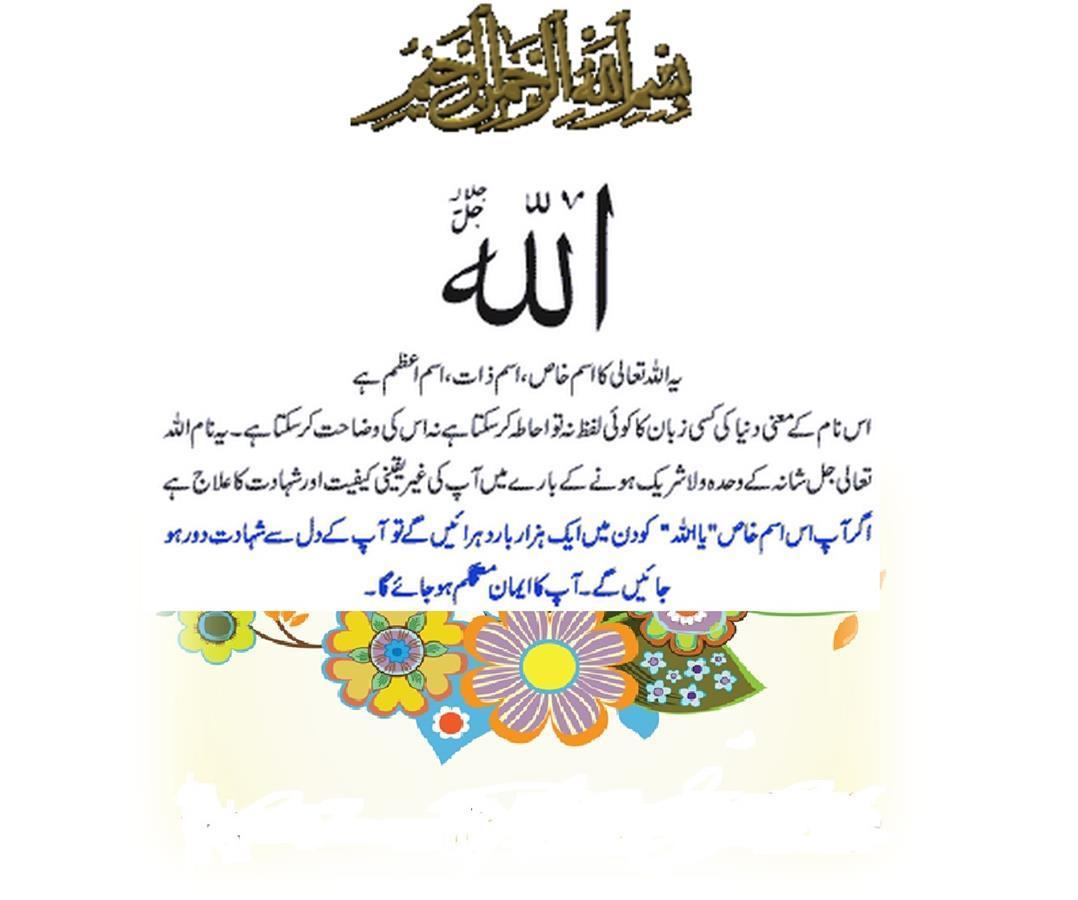 بسم الله الرحمن الرحيم
الله جل جلالہ
یہ اللہ تعالی کا اسم خاص، اسم ذات، اسم اعظم ہے
اس نام کے معنی دنیا کی کسی زبان کا کوئی لفظ نہ تو احاطہ کر سکتا ہے نہ اس کی وضاحت کر سکتا ہے۔ یہ نام اللہ
تعالی جل شانہ کے وحدہ ولا شریک ہونے کے بارے میں آپ کی غیر یقینی کیفیت اور شہادت کا علاج ہے
اگر آپ اس اسم خاص "یا اللہ" کو دن میں ایک ہزار بار دہرائیں گے تو آپ کے دل سے شہادت دور ہو
جائیں گے۔ آپ کا ایمان مستحکم ہو جائے گا۔